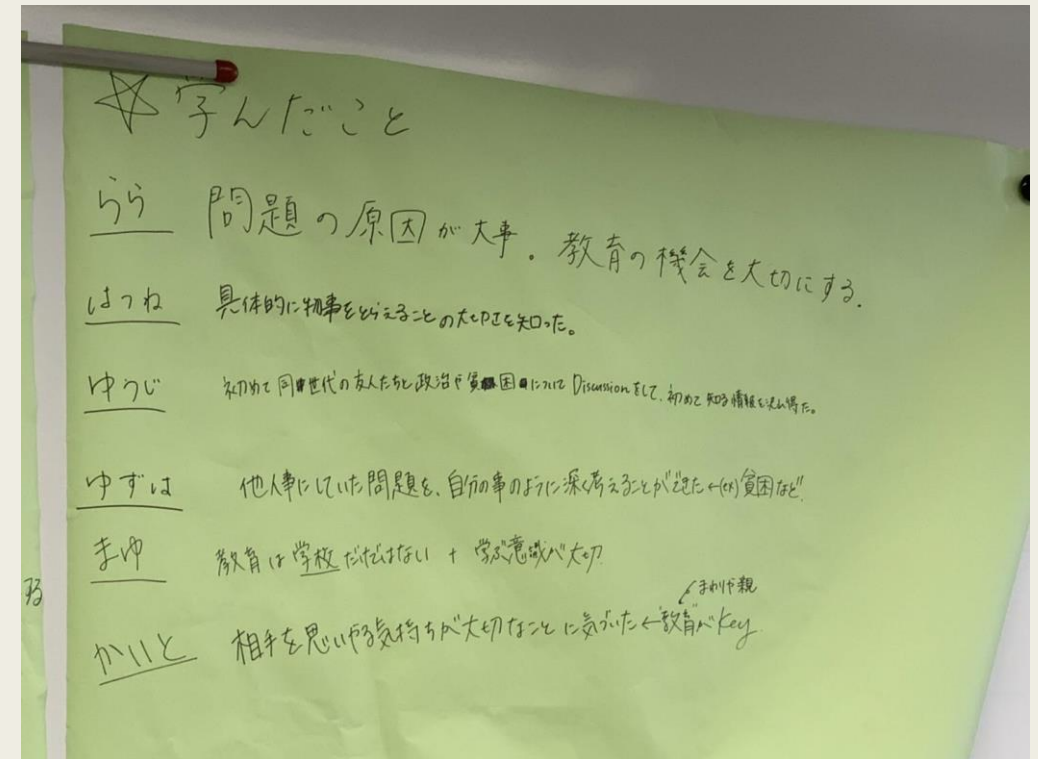 ☆ 学んだこと
らら 問題の原因が大事。教育の機会を大切にする。
はつね 具体的に物事をとらえることの大切さを知った。
ゆうじ 初めて同世代の友人たちと政治や貧困についてDiscussionをして、初めて知る情報を沢山得た。
ゆずは 他人事にしていた問題を、自分の事のように深く考えることができた←(ex)貧困など
まゆ 教育は学校だけではない + 学ぶ意識が大切
まわりや親
かいと 相手を思いやる気持ちが大切なことに気づいた←教育がkey.